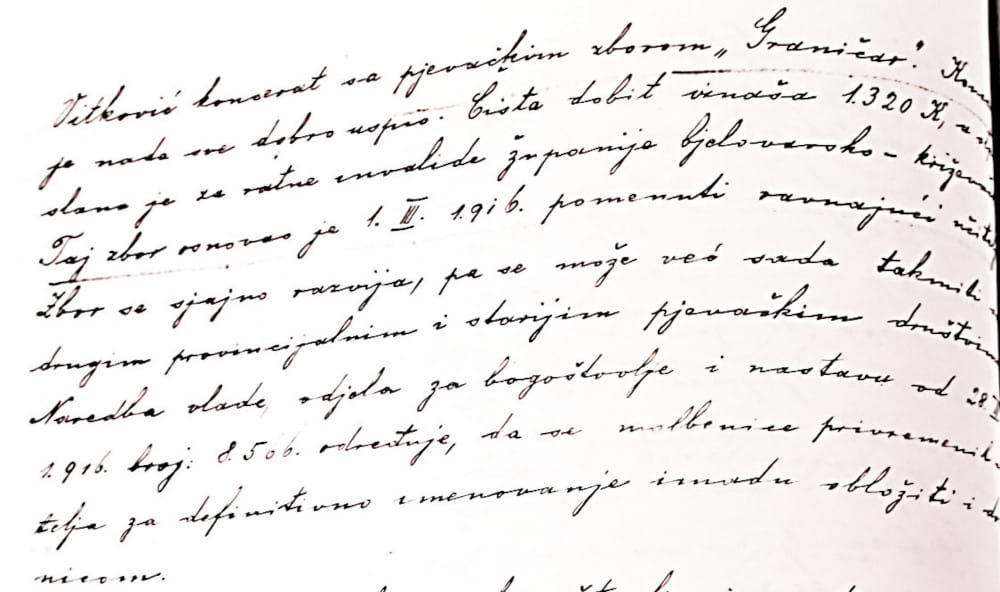 Vitković koncerat sa pjevačkim zborom „Graničar“.
je nada sve dobro uspio. Čista dobit iznaša 1.320 K,
slano je za ratne invalide županije bjelovarsko-
Taj zbor osnovao je 1. III. 1.916. pomenuti ravnajući
Zbor se sjajno razvija, pa se može već sada takmiti
drugim provincijalnim i starijim pjevačkim
Naredba vlade, odjela za bogoštovlje i nastavu od 28.
1.916. broj: 8.506. određuje, da se molbenice
telja za definitivno imenovanje imadu obložiti i
nicom.